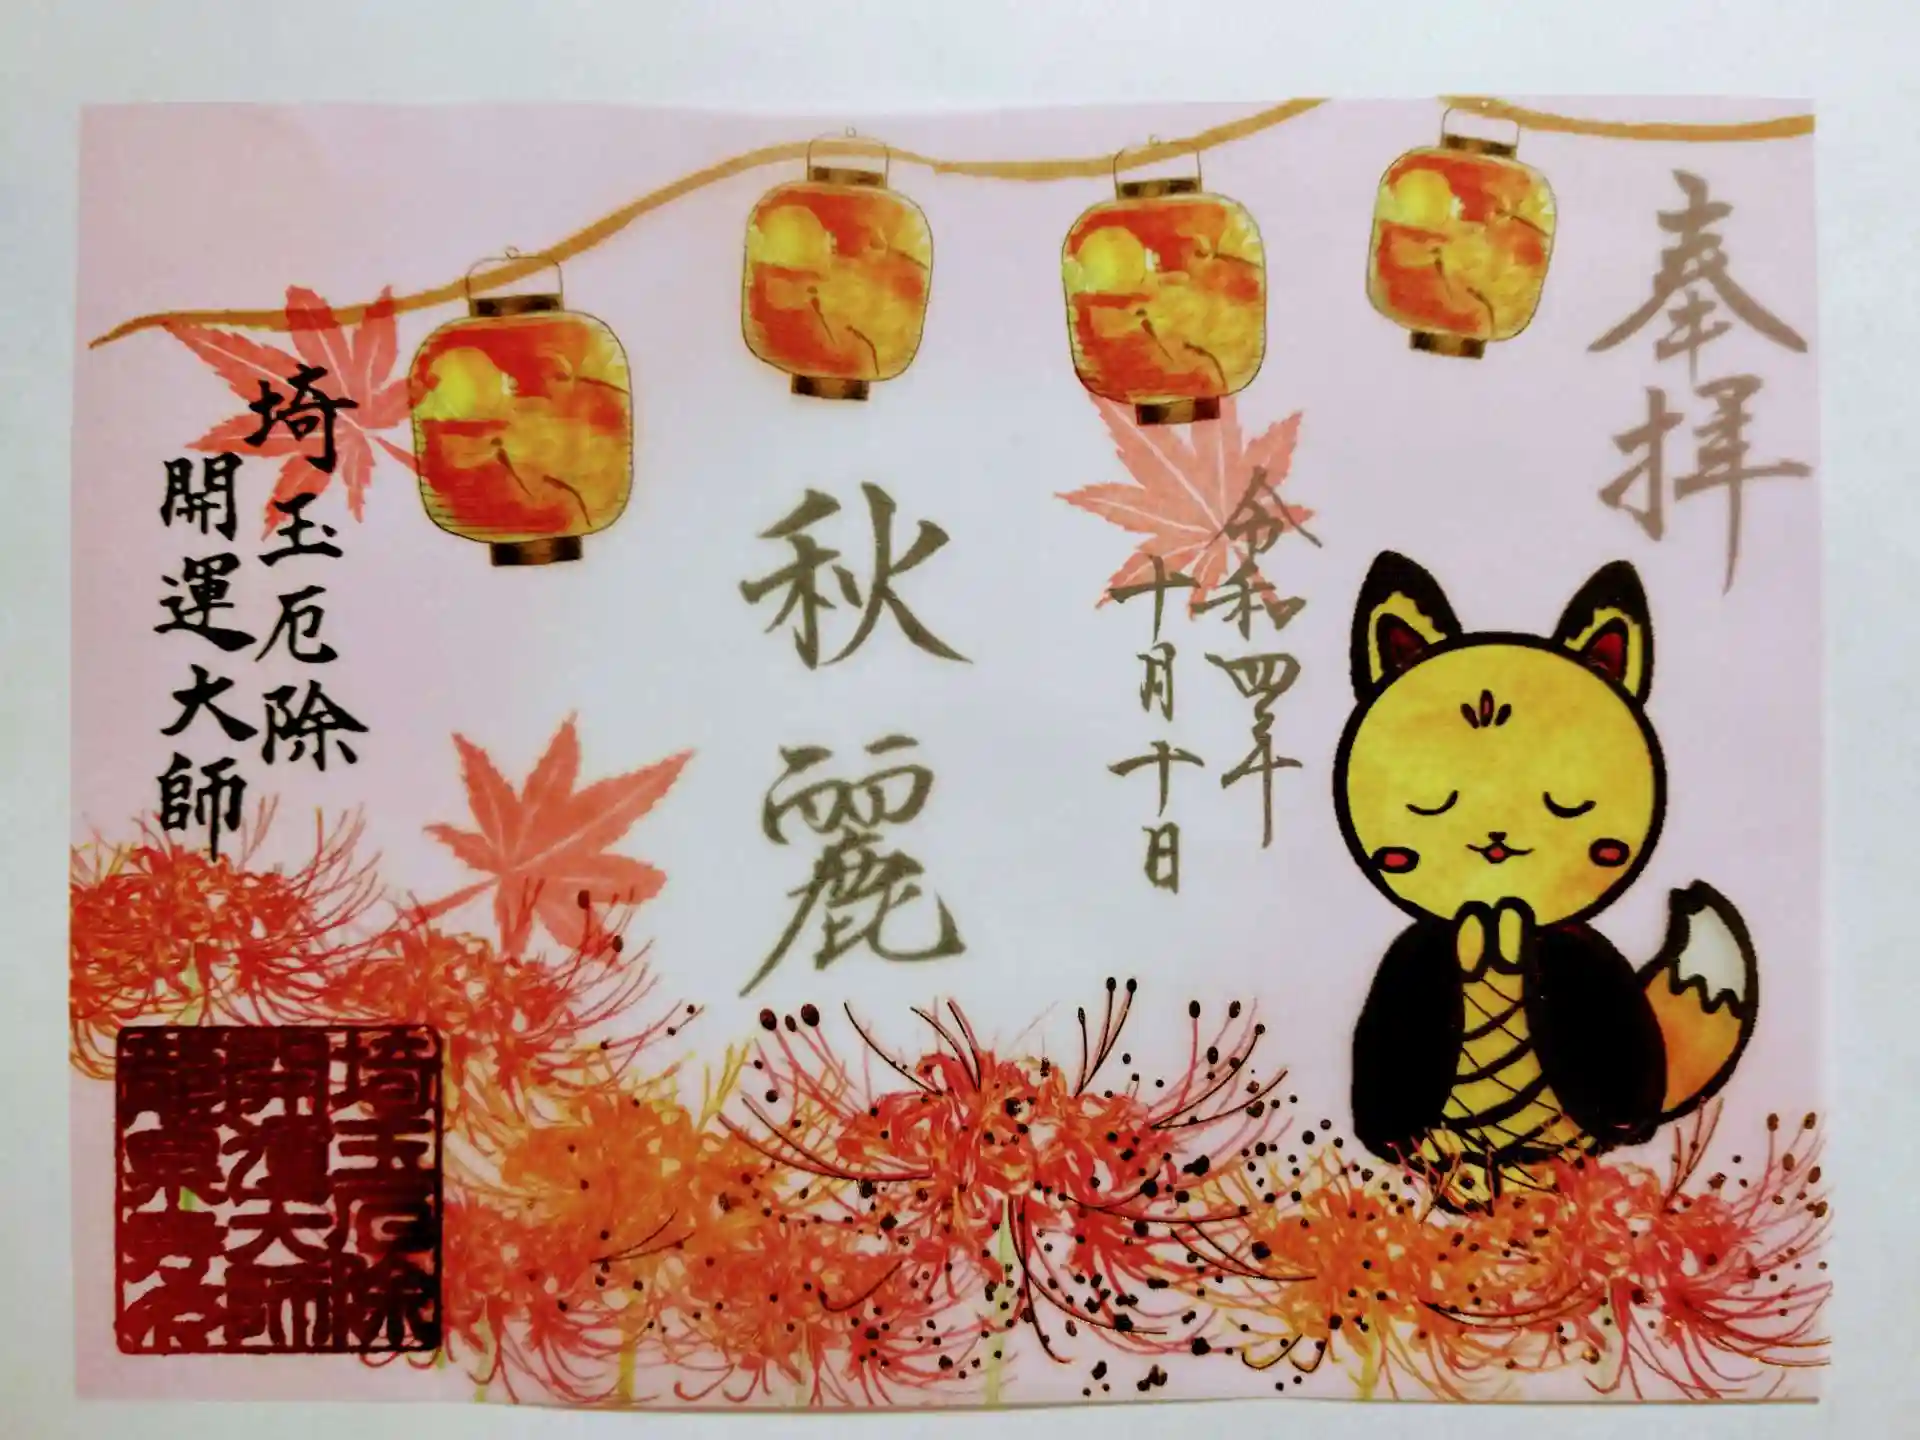 奉拝
令和四年
十月十日
秋麗
埼玉厄除
開運大師
埼玉厄除
開運大師
龍泉